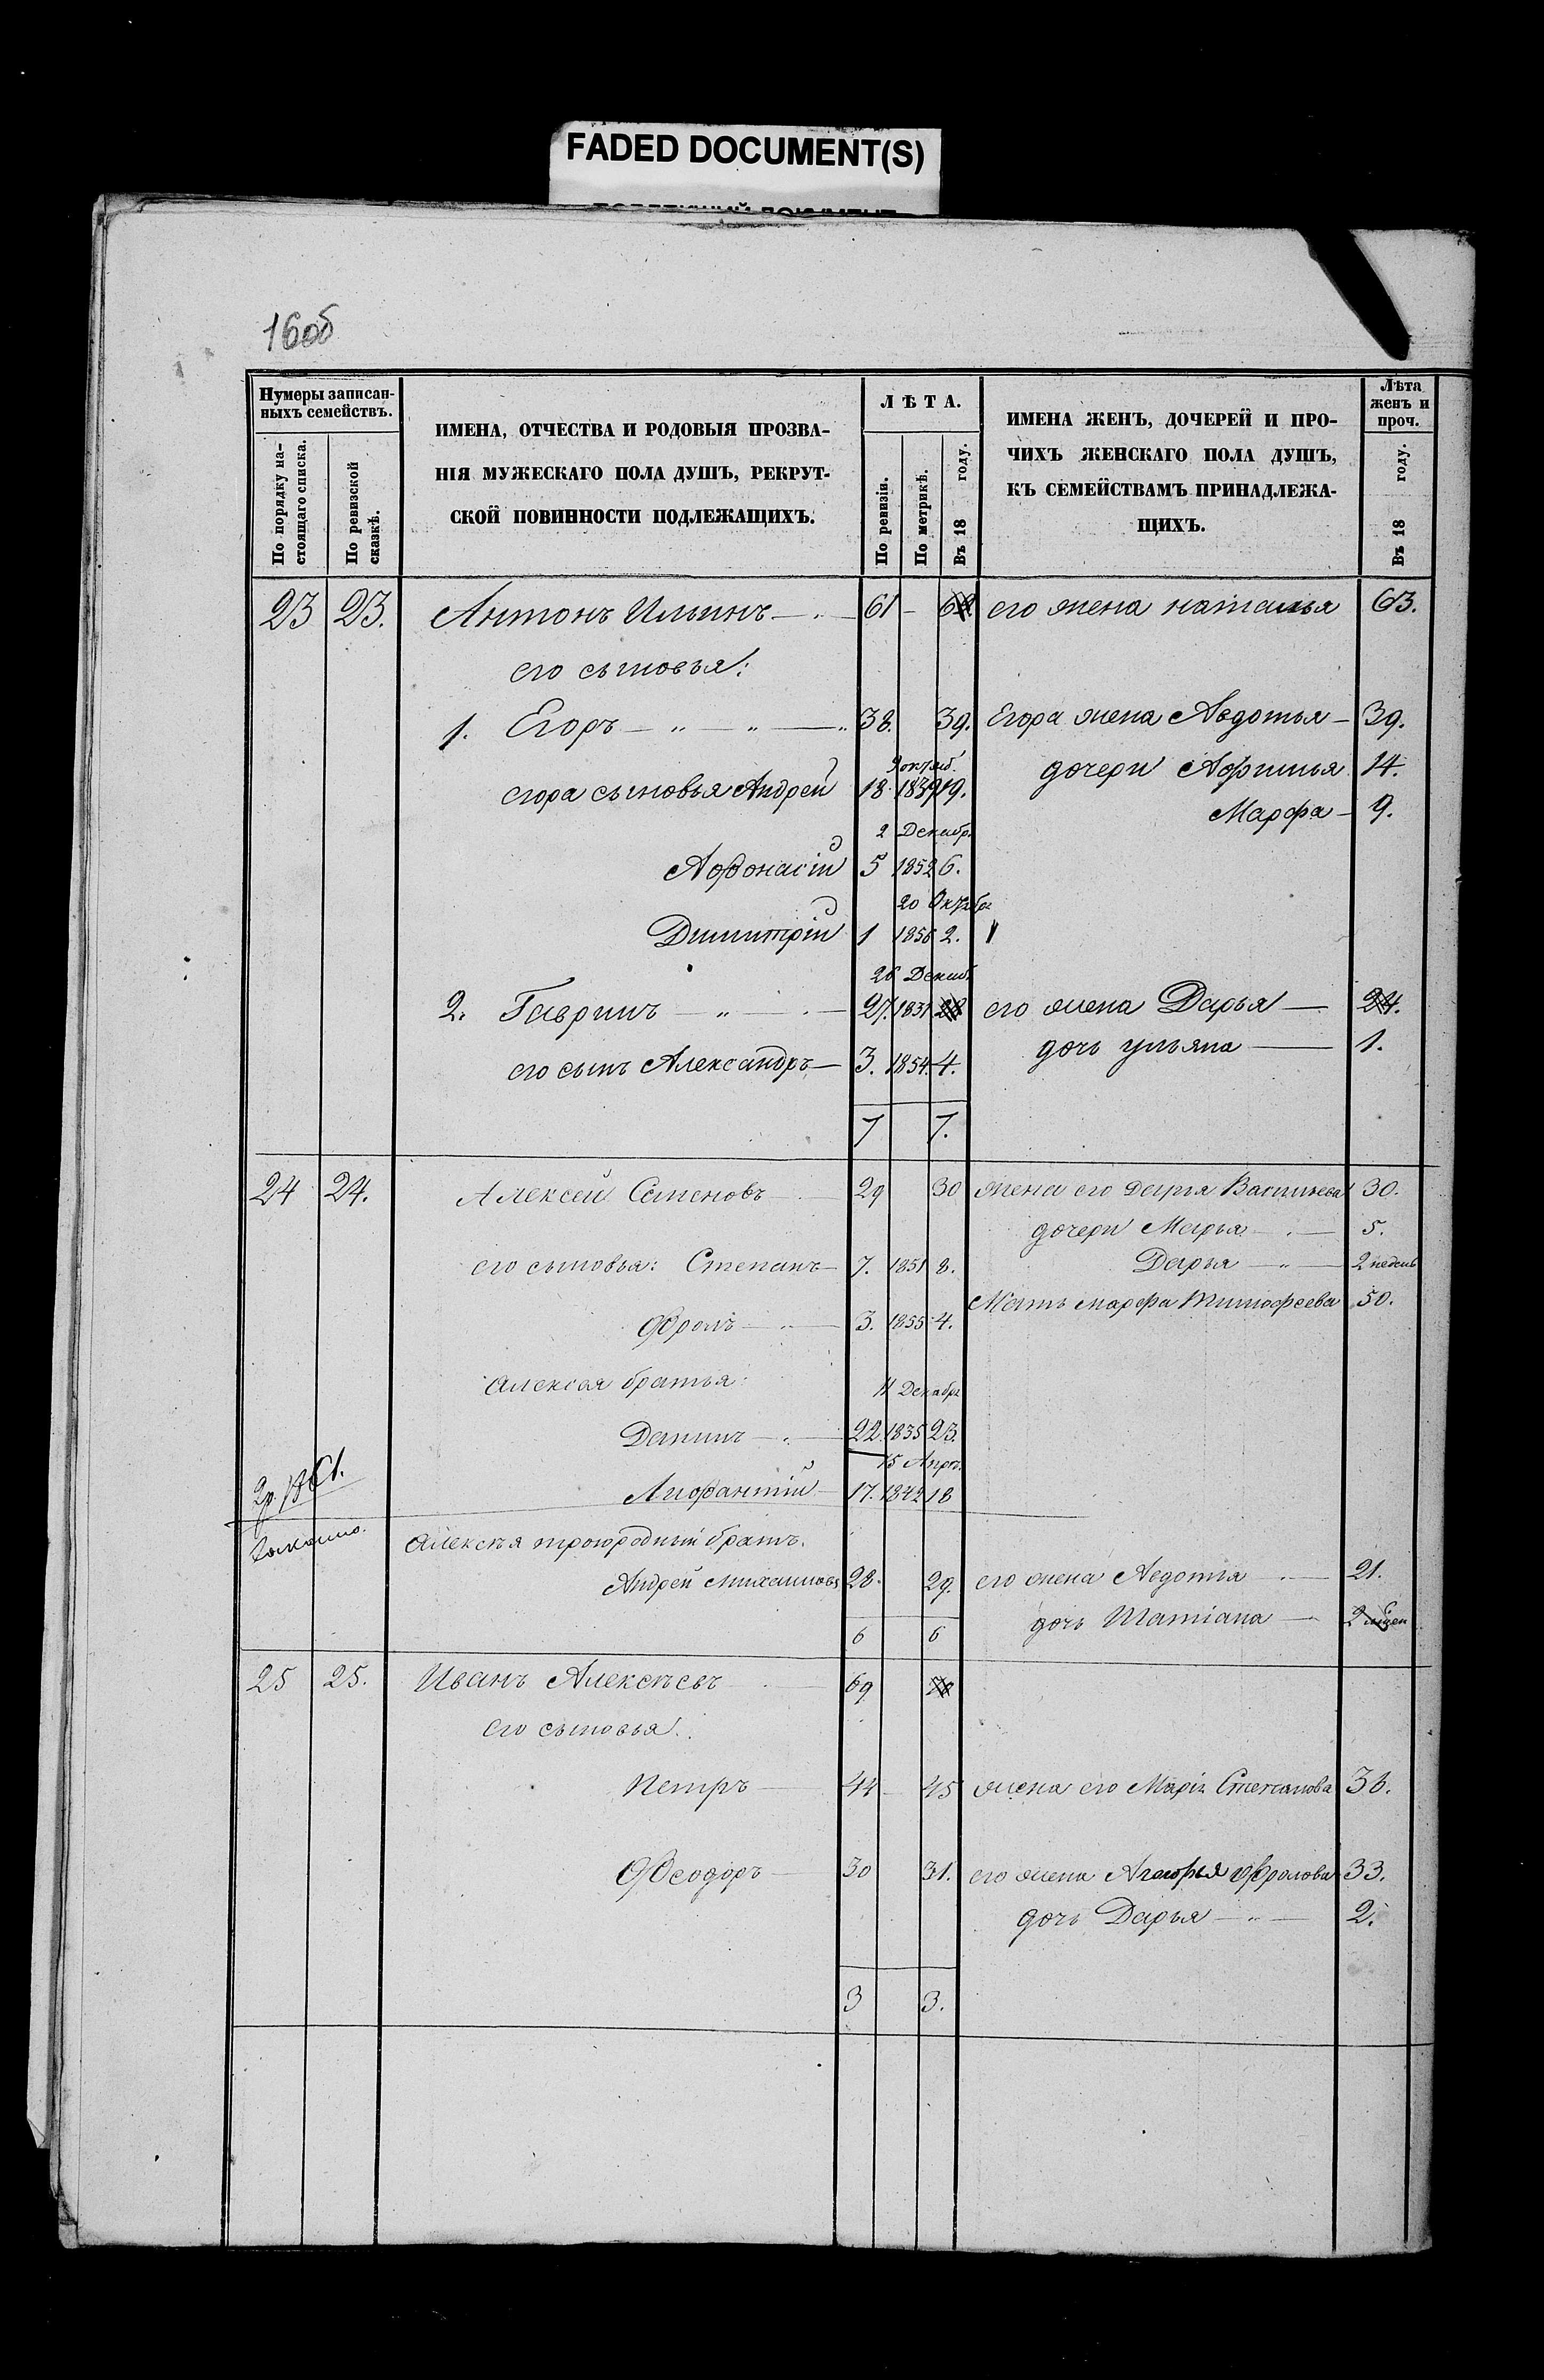 FADED DOCUMENT(S)
16об
Нумеры записан-
ныхъ семействъ.
По порядку на-
стоящаго списка.
По ревизской
сказкѣ.
ИМЕНА, ОТЧЕСТВА И РОДОВЫЯ ПРОЗВА-
НІЯ МУЖЕСКАГО ПОЛА ДУШЪ, РЕКРУТ-
СКОЙ ПОВИННОСТИ ПОДЛЕЖАЩИХЪ.
ЛѢТА.
По ревизіи.
По метрикѣ.
Въ 18 году.
ИМЕНА ЖЕНЪ, ДОЧЕРЕЙ И ПРО-
ЧИХЪ ЖЕНСКАГО ПОЛА ДУШЪ,
КЪ СЕМЕЙСТВАМЪ ПРИНАДЛЕЖА-
ЩИХЪ.
Лѣта
женъ и
проч.
Въ 18 году.
23 23. Антонъ Ильинъ 61 - его жена наталья 63.
его сыновья:
1. Егоръ 38. 39. Егора жена Авдотья 39.
9 октяб.
егора сыновья Андрей 18 1839 19. дочери 14.
Марфа 9.
2 Декабр.
Афонасій 5 1852 6.
20 Октября
Димитрій 1 1856 2.
26 Декаб.
2. Гаврилъ 27. 1831 28 его жена Дарья 24.
его сынъ Александръ 3. 1854. 4. дочь ульяна 1.
7 7.
24 24. Алексей Семеновъ 29 30 жена его Дарья Васильева 30.
дочери Марья 5.
его сыновья: Степанъ 7. 1851 8. Дарья 2 недель
Мать марфа Тимофеева 50.
Фролъ 3. 1855 4.
алексея братья:
11 Декабря
Данилъ 22. 1835 23.
15 Апрѣ.
17. 1842 18
алексѣя троюродный братъ.
Андрей михаиловъ 28. 29. его жена Авдотья 21.
дочь Татіана 2
6 6
25 25. Иванъ Алексѣевъ 69 70
его сыновья.
Петръ 44 45 жена его Марія Степанова 36.
Феодоръ 30 31. его жена фролова 33.
дочь Дарья 2.
3 3.